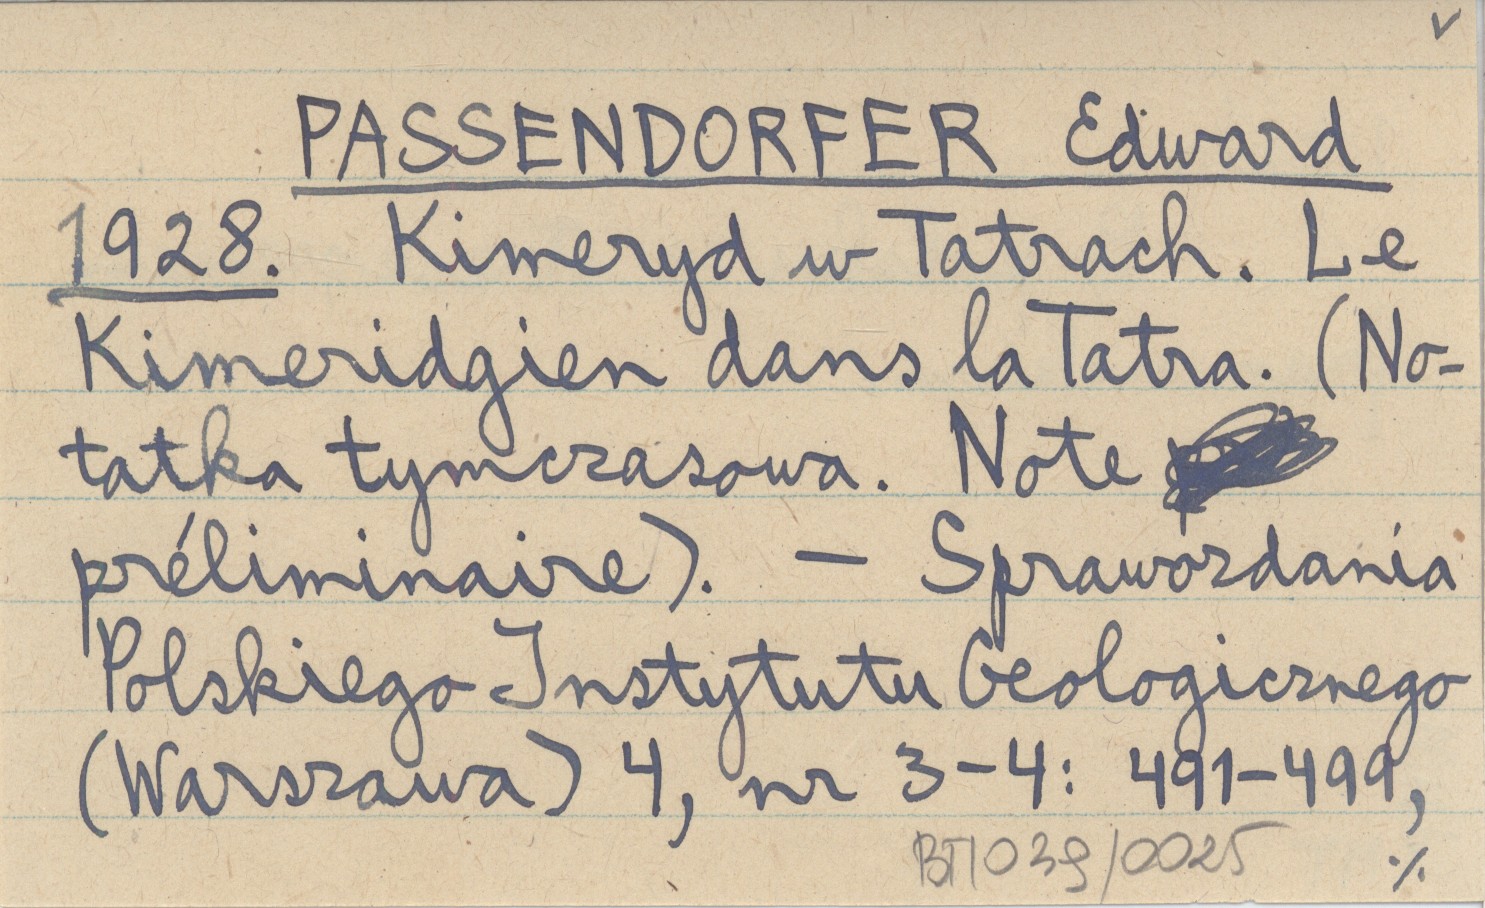 v
PASSENDORFER Edward
1928. Kimeryd w Tatrach. Le
Kimeridgien dans la Tatra. (No-
tatka tymczasowa. Note
préliminaire). — Sprawozdania
Polskiego Instytutu Geologicznego
(Warszawa) 4, nr 3-4: 491-499,
BT1039/0025
./.